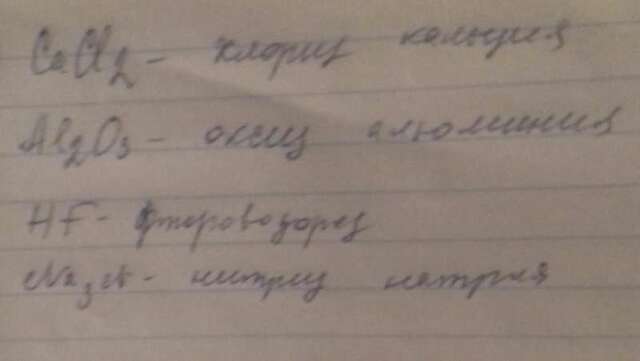 CaCl2 - хлорид кальция
Al2O3 - оксид алюминия
HF - фтороводород
Na3N - нитрид натрия